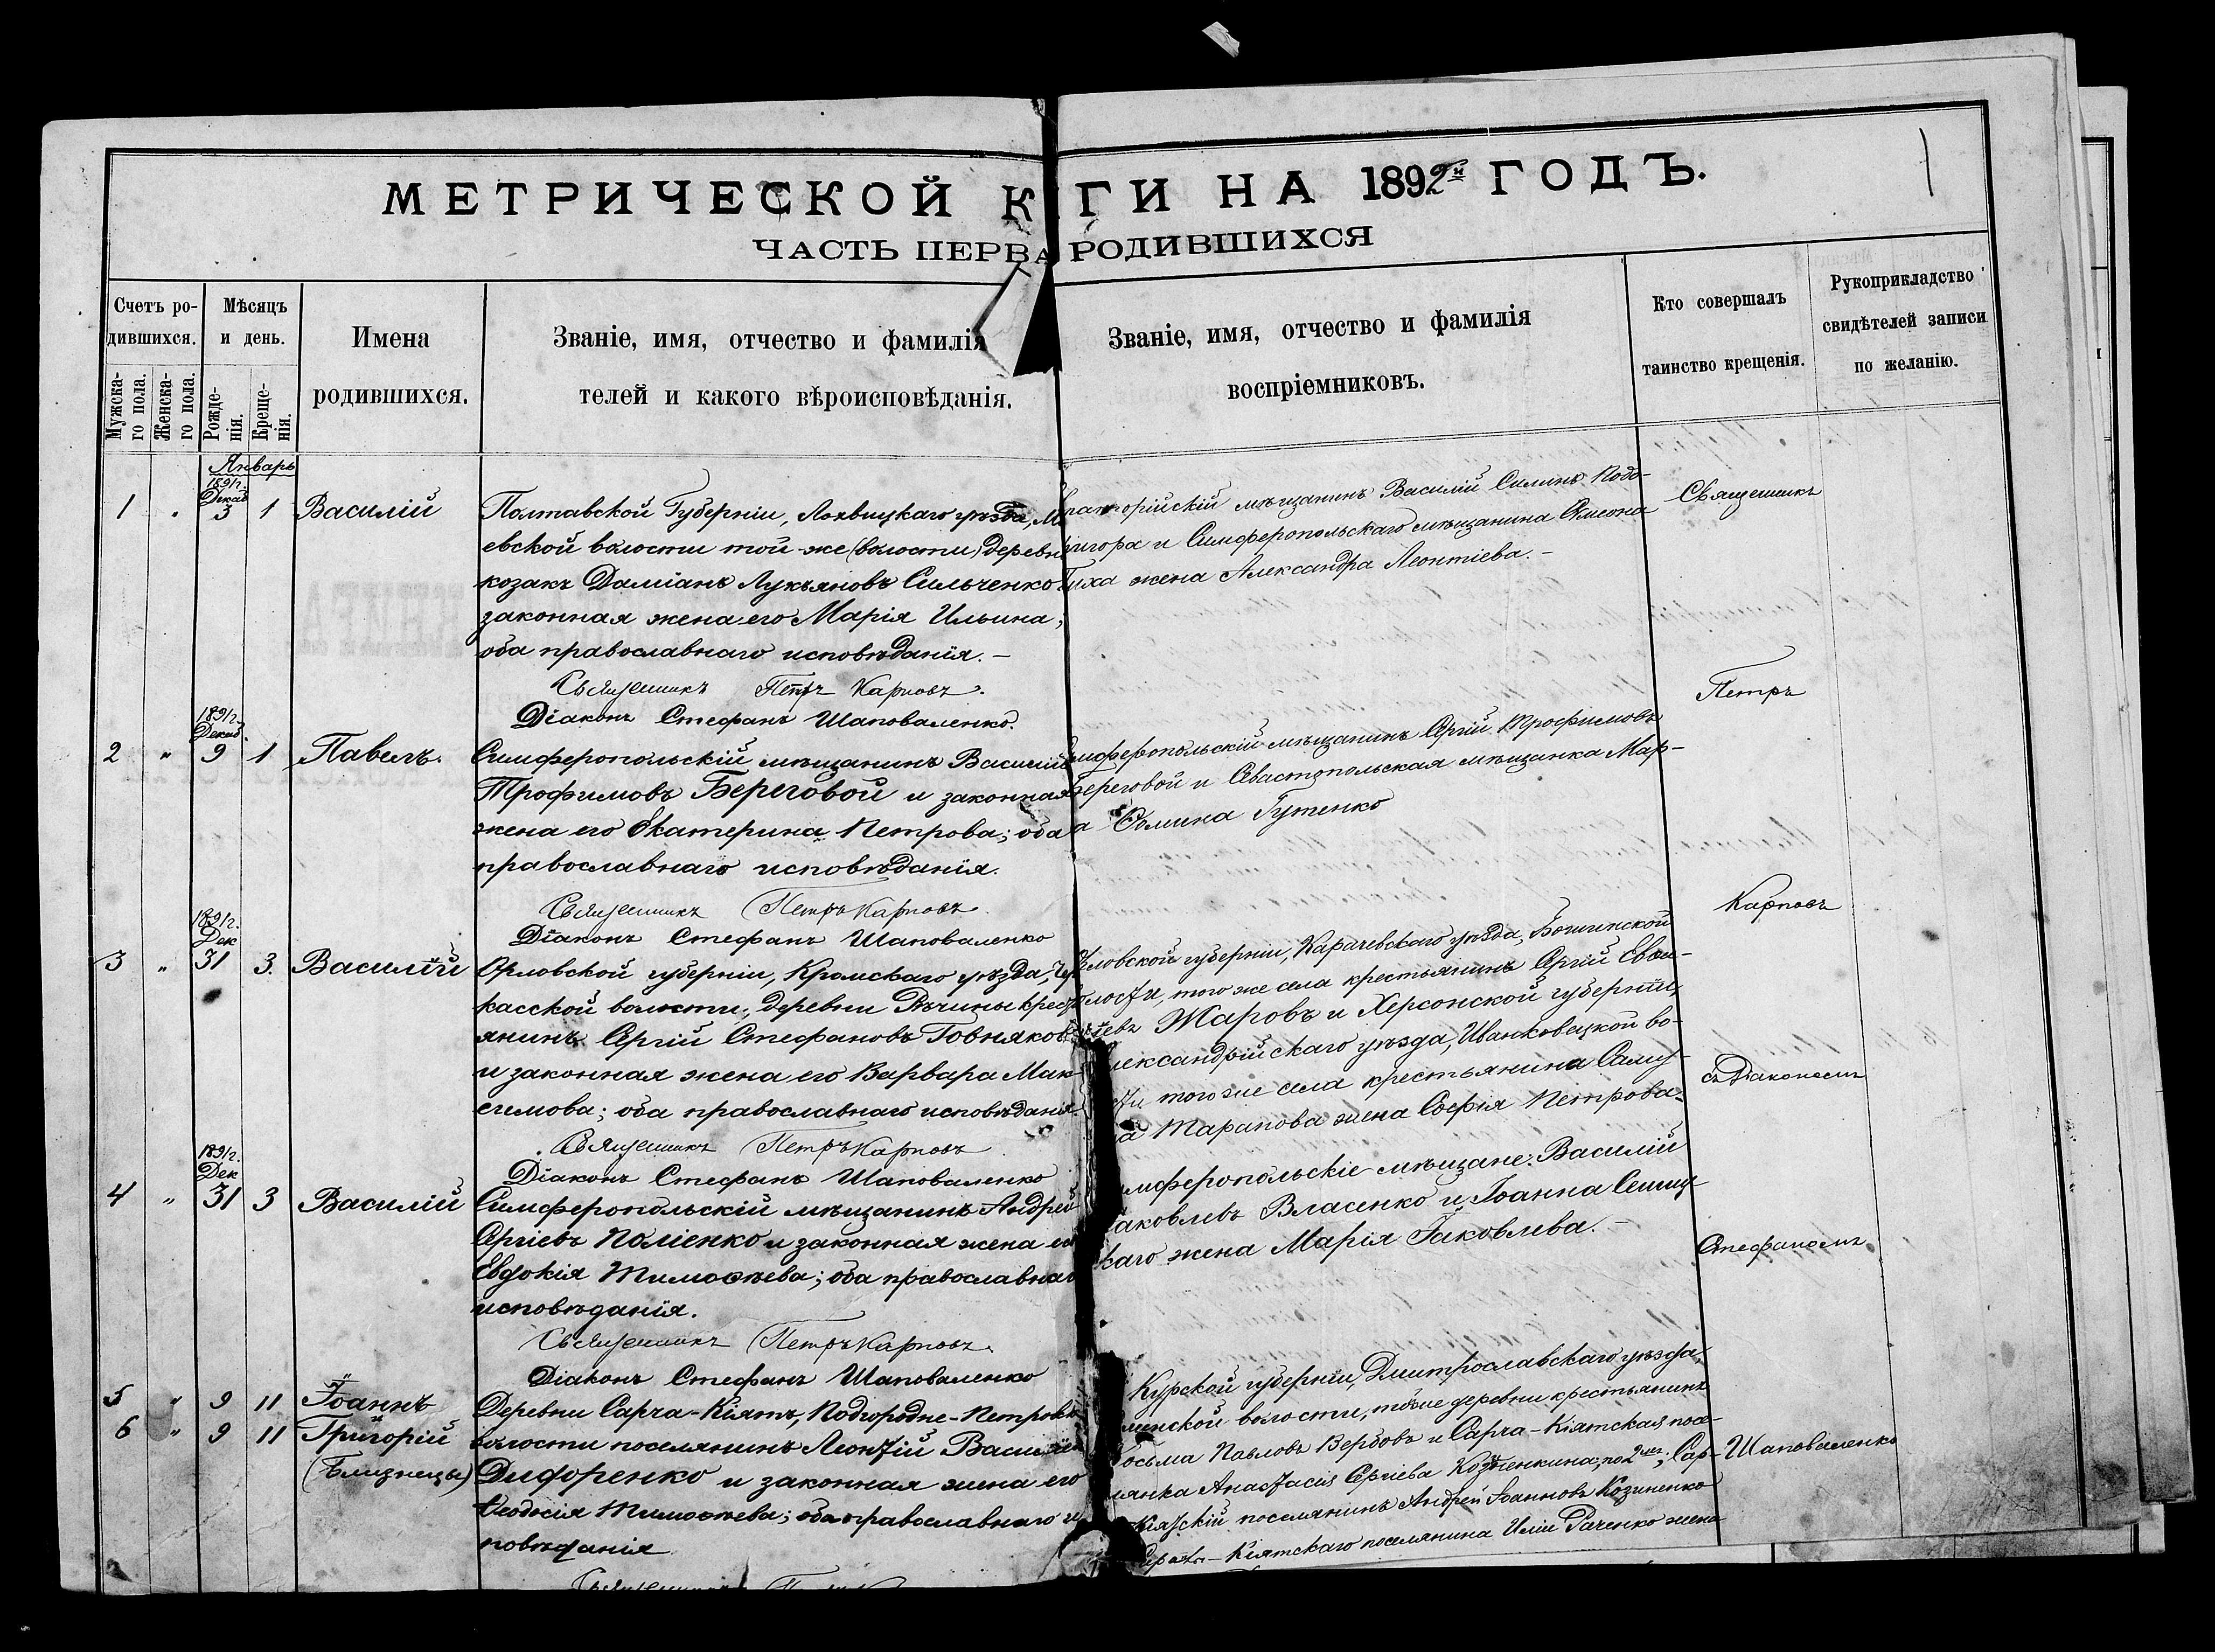 МЕТРИЧЕСКОЙ К ГИ НА 1892й ГОДЪ.
1
ЧАСТЬ ПЕРВА РОДИВШИХСЯ
Счетъ ро-
дившихся.
Мужска-
го пола.
Женска-
го пола.
Мѣсяцъ
и день.
Рожде-
нія.
Креще-
нія.
Имена
родившихся.
Званіе, имя, отчество и фамилія
телей и какого вѣроисповѣданія.
Званіе, имя, отчество и фамилія
воспріемниковъ.
Кто совершалъ
таинство крещенія.
Рукоприкладство
свидѣтелей записи
по желанію.
Январь
1891г.
Декаб
1 " 3 1 Василій
Полтавской Губерніи, Лохвицкаго уѣзда,
евской волости той-же (волости) деревни
козакъ Даміанъ Лукьяновъ Сильченко
законная жена его Марія Ильина;
оба православнаго исповѣданія. —
Священникъ Петръ Карповъ.
Діаконъ Стефанъ Шаповаленко.
мѣщанинъ Василій Силинъ Подо-
и Симферопольскаго мѣщанина Симеона
жена Александра Леонтіева. —
Священникъ
Петръ
Карповъ
съ Діакономъ
Стефаномъ
Шаповаленко
1891г.
Декаб.
2 " 9 1 Павелъ.
Симферопольскій мѣщанинъ Василій
Трофимовъ Береговой и законная
жена его Екатерина Петрова; оба
православнаго исповѣданія.
Священникъ Петръ Карповъ
Діаконъ Стефанъ Шаповаленко
имферопольскій мѣщанинъ Сергій Трофимовъ
Береговой и Севастопольская мѣщанка Мар-
а Ѳомина Гутенко
1891г.
Дек
3 " 31 3. Василій
Орловской губерніи, Кромскаго уѣзда, Чер
касской волости, деревни крест
янинъ Сергій Стефановъ Говняковъ
и законная жена его Варвара Мак-
симова; оба православнаго исповѣданія.
Священникъ Петръ Карповъ
Діаконъ Стефанъ Шаповаленко
ловской губерніи, Карачевскаго уѣзда,
волости, того же села крестьянинъ Сергій
Жаровъ и Херсонской губерніи,
лександрійскаго уѣзда, Иванковецкой во-
сти того же села крестьянина Саму-
Тарапова жена Софія Петрова.
1891г.
Дек
4 " 31 3 Василій
Симферопольскій мѣщанинъ Андрей
Сергіевъ Поліенко и законная жена его
Евдокія Тимоѳеева; оба православнаго
исповѣданія.
Священникъ Петръ Карповъ.
Діаконъ Стефанъ Шаповаленко
имферопольскіе мѣщане: Василій
аковлевъ Власенко и Іоанна
каго жена Марія Іаковлева. —
5 " 9 11 Іоаннъ
6 " 9 11 Григорій
(Близнецы)
Деревни Сарча-Кіятъ, Подгородне-Петровск
волости поселянинъ Леонтій Васильевъ
Дифоренко и законная жена его
Ѳеодосія Тимоѳеева; оба православнаго ис
повѣданія
Курской губерніи, Дмитрославскаго уѣзда,
волости, тойже деревни крестьянинъ
осьма Павловъ Вербовъ и Сарча-Кіятская посе-
лянка Анастасія Сергіева по 2мъ, Сар-
Кіятскій поселянинъ Андрей Іоанновъ Козиненко
Кіятскаго поселянина Иліи Раченко жена